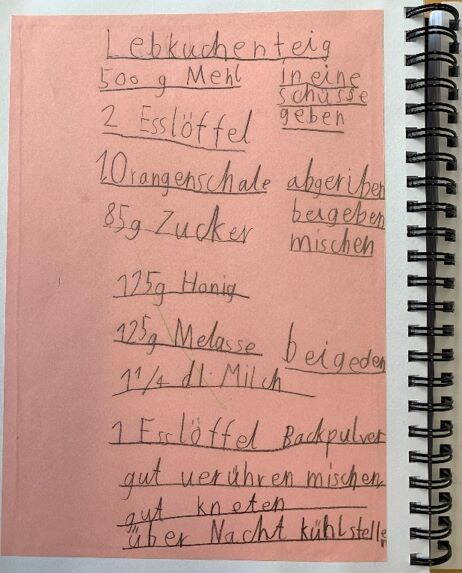 Lebkuchenteig
500 g Mehl in eine
schüsse
2 Esslöffel geben
1 Orangenschale abgeriben
85g Zucker beigeben
mischen
125g Honig
125g Melasse beigeden
1 1/4 dl Milch
1 Esslöffel Backpulver
gut verühren mischen
gut kneten
über Nacht kühlstelle